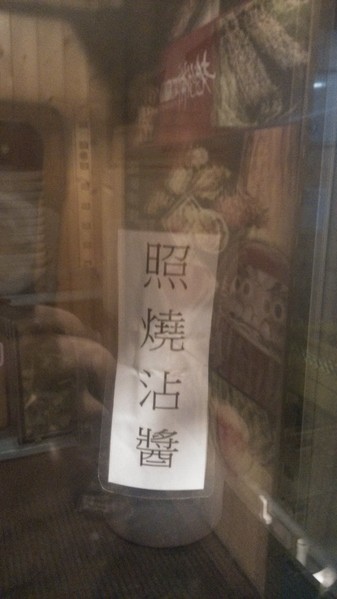 照燒沾醬